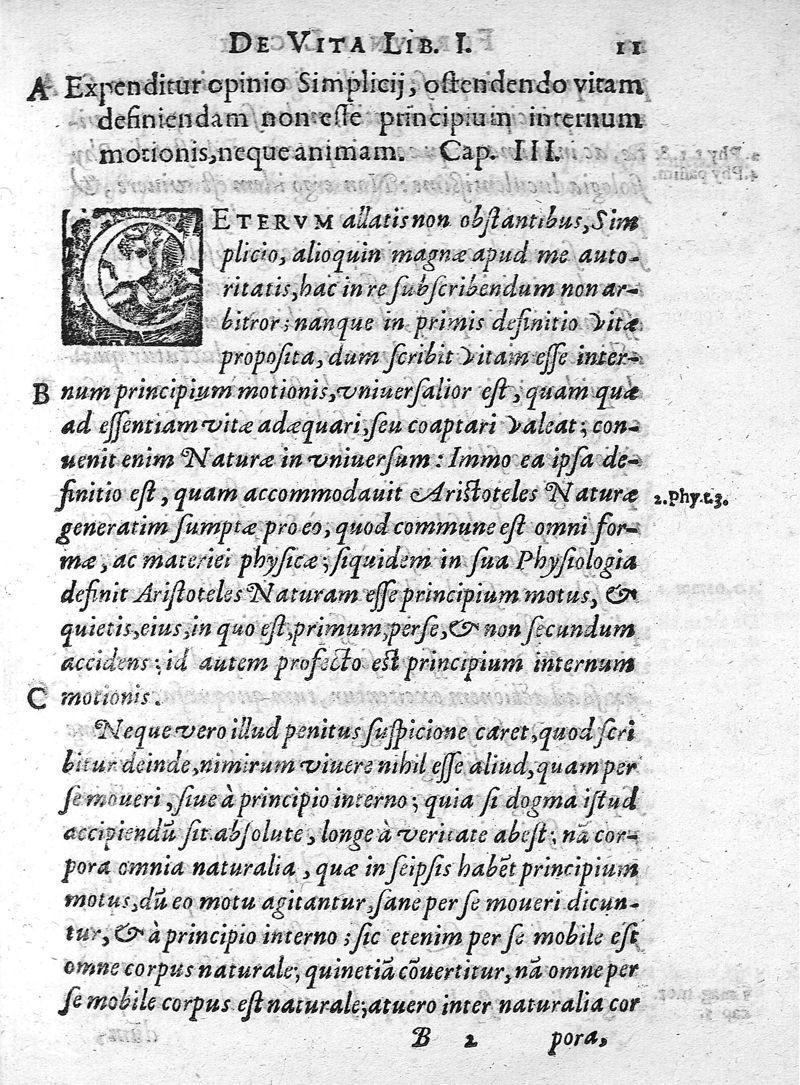 DE VITA LIB. I. 11
A Expenditur opinio Simplicij, ostendendo vitam
definiendam non esse principium internum
motionis, neque animam. Cap. III.
CETERVM allatis non obstantibus, Sim
plicio, alioquin magnæ apud me auto-
ritatis, hac in re subscribendum non ar-
bitror; nanque in primis definitio vitæ
proposita, dum scribit vitam esse inter-
B num principium motionis, vniuersalior est, quam quæ
ad essentiam vitæ adæquari, seu coaptari valeat; con-
uenit enim Naturæ in vniuersum: Immo ea ipsa de-
finitio est, quam accommodauit Aristoteles Naturæ 2. Phy. t. 3.
generatim sumptæ pro eo, quod commune est omni for-
mæ, ac materiei physicæ; siquidem in sua Physiologia
definit Aristoteles Naturam esse principium motus, &
quietis, eius, in quo est, primum, per se, & non secundum
accidens; id autem profecto est principium internum
C motionis.
Neque vero illud penitus suspicione caret, quod scri
bitur deinde, nimirum viuere nihil esse aliud, quam per
se moueri, siue à principio interno; quia si dogma istud
accipiendū sit absolute, longe à veritate abest; nā cor-
pora omnia naturalia, quæ in seipsis habēt principium
motus, dū eo motu agitantur, sane per se moueri dicun-
tur, & à principio interno; sic etenim per se mobile est
omne corpus naturale; quinetiā cōuertitur, nā omne per
se mobile corpus est naturale; at uero inter naturalia cor
B 2 pora,